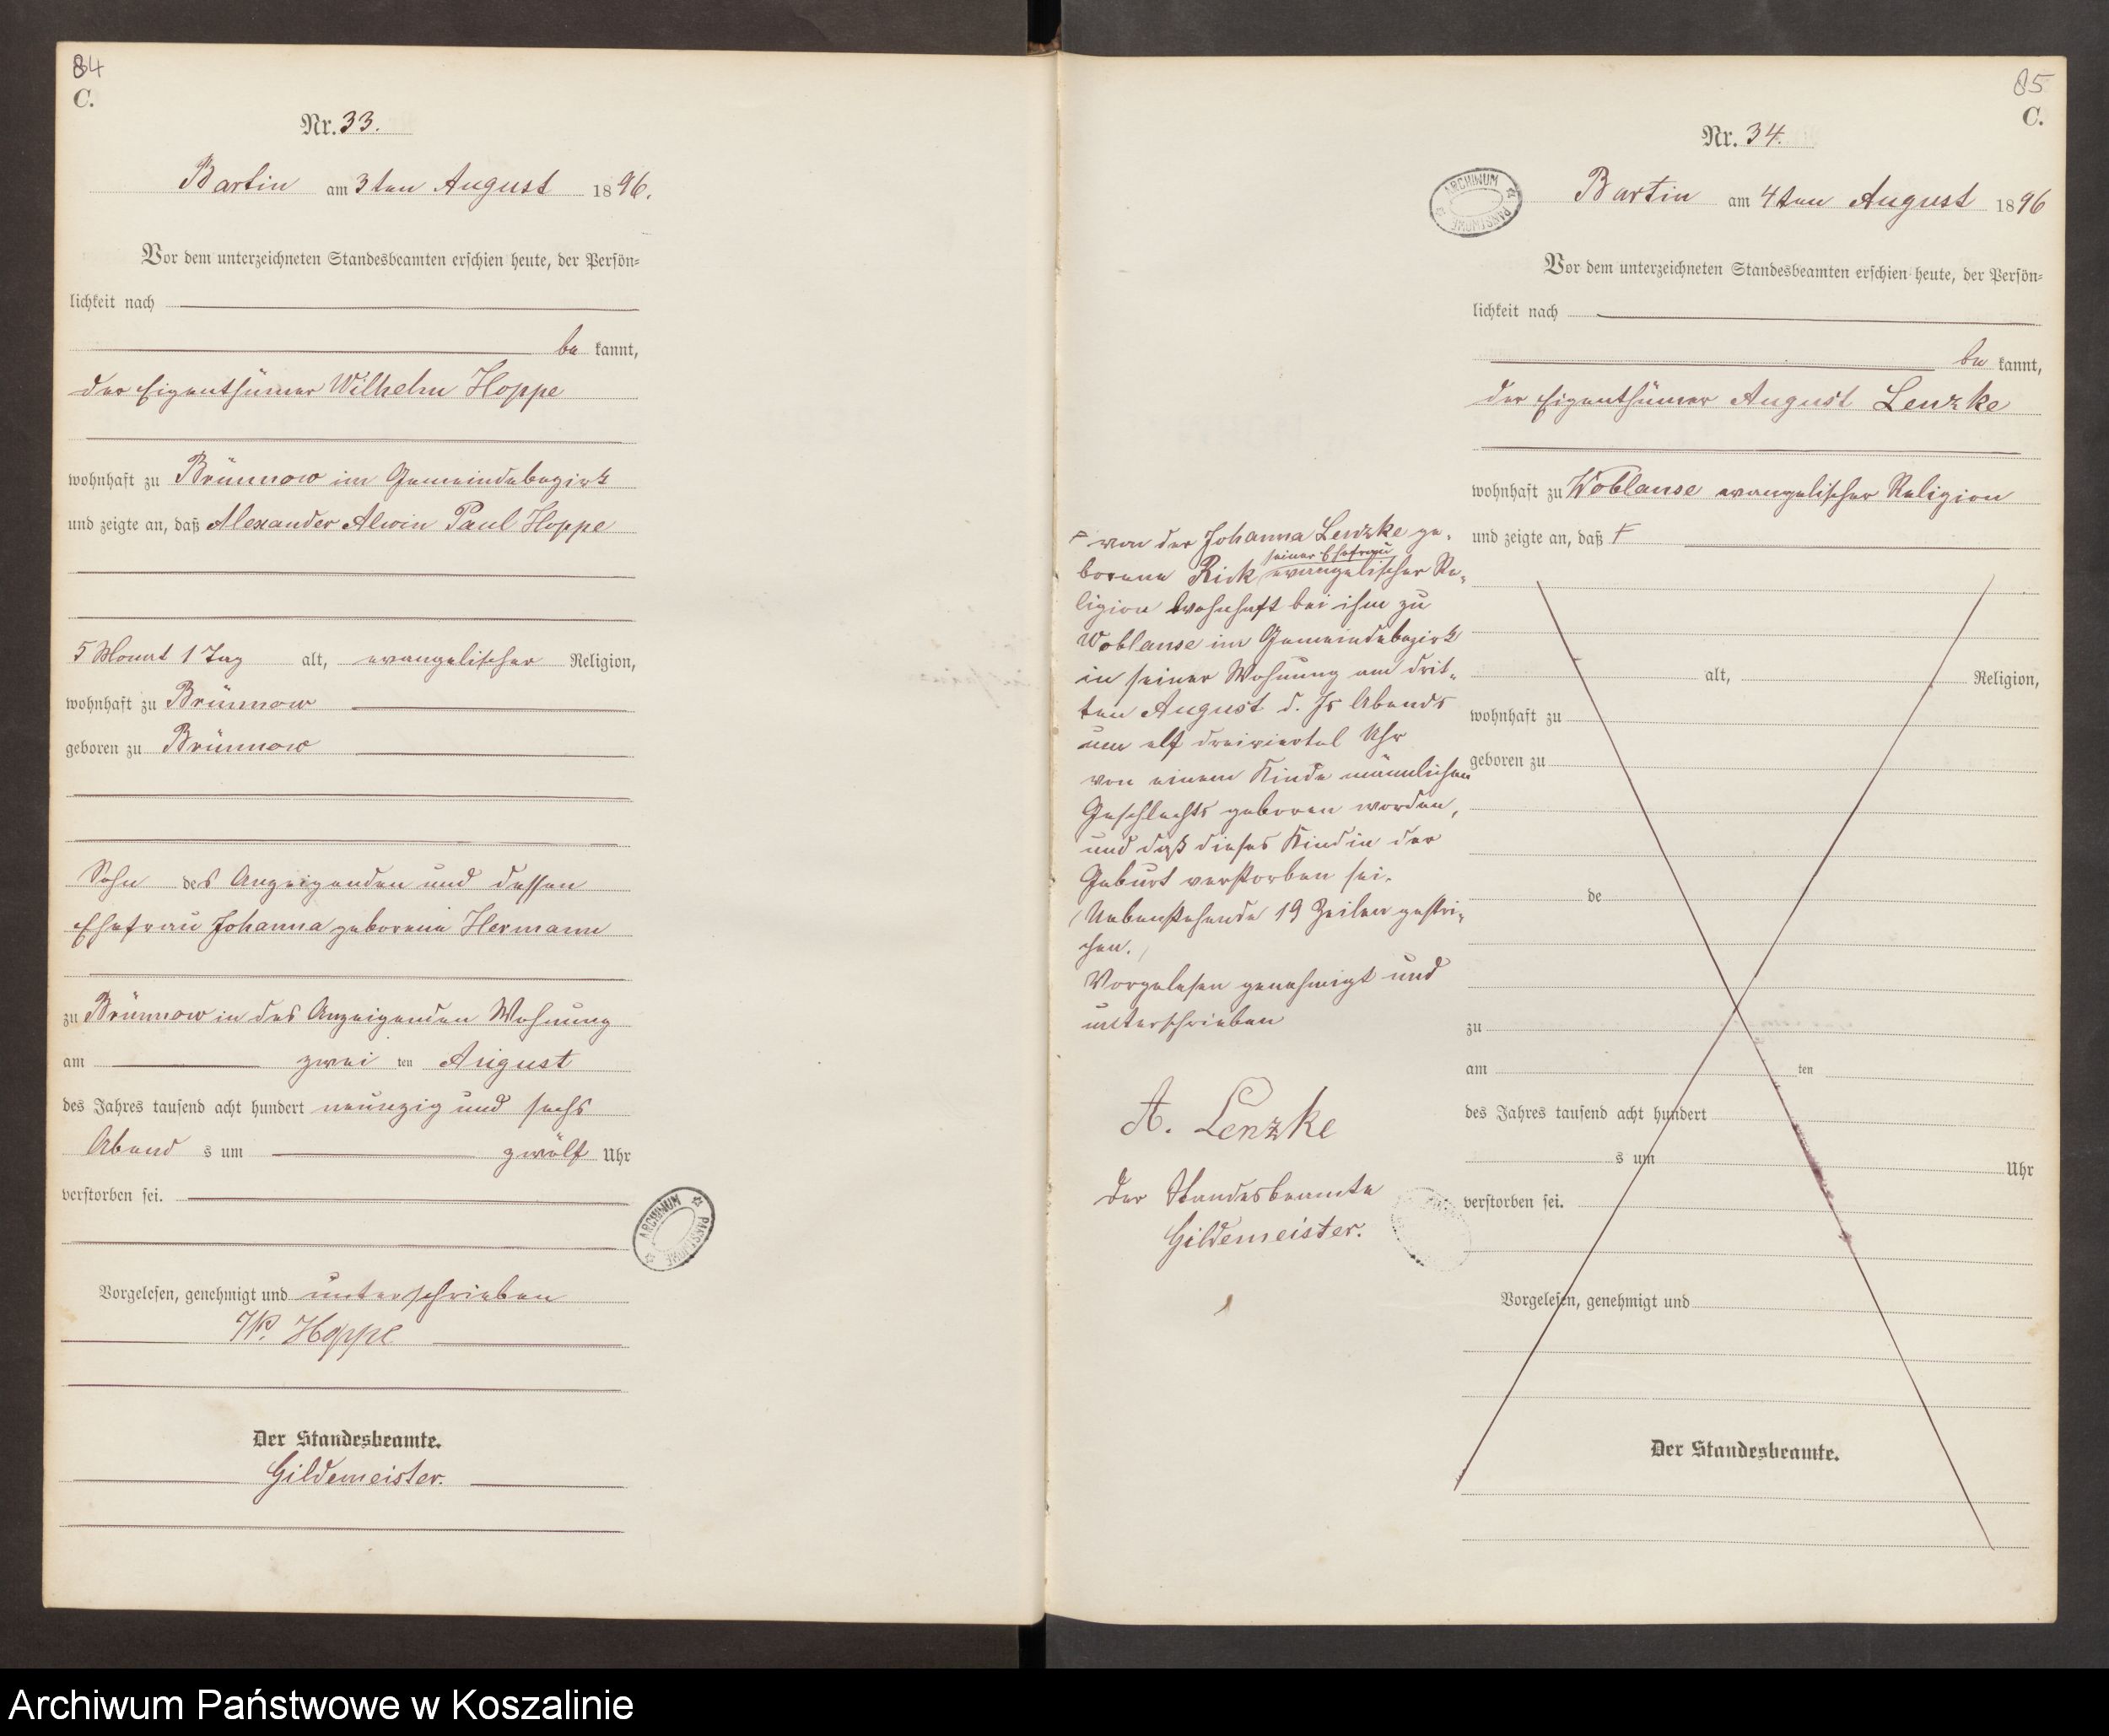 84
C.
Nr. 33.
Bartin am 3ten August 1896.
Vor dem unterzeichneten Standesbeamten erschien heute, der Persön-
lichkeit nach
be kannt,
der Eigenthümer Wilhelm Hoppe
wohnhaft zu Brünnow im Gemeindebezirk
und zeigte an, daß Alexander Alwin Paul Hoppe
5 Monat 1 Tag alt, evangelischer Religion,
wohnhaft zu Brünnow
geboren zu Brünnow
Sohn des Anzeigenden und dessen
Ehefrau Johanna geborene Hermann
zu Brünnow in des Anzeigenden Wohnung
am zwei ten August
des Jahres tausend acht hundert neunzig und sechs
Abend s um zwölf Uhr
verstorben sei.
ARCHIWUM PAŃSTWOWE
Vorgelesen, genehmigt und unterschrieben
W. Hoppe
Der Standesbeamte.
Gildemeister.
85
C.
Nr. 34.
ARCHIWUM PAŃSTWOWE
Bartin am 4ten August 1896
Vor dem unterzeichneten Standesbeamten erschien heute, der Persön-
lichkeit nach
be kannt,
der Eigenthümer August Lenzke
wohnhaft zu Woblanse evangelischer Religion
und zeigte an, daß F
F von der Johanna Lenzke ge-
seiner Ehefrau
borene Rick evangelischer Re-
ligion wohnhaft bei ihm zu
Woblanse im Gemeindebezirk
in seiner Wohnung am drit-
ten August d. Js Abends
um elf dreiviertel Uhr
von einem Kinde männlichen
Geschlechts geboren worden,
und daß dieses Kind in der
Geburt verstorben sei.
(Nebenstehende 19 Zeilen gestri-
chen.)
Vorgelesen genehmigt und
unterschrieben
A. Lenzke
Der Standesbeamte
Gildemeister.
alt, Religion,
wohnhaft zu
geboren zu
de
zu
am ten
des Jahres tausend acht hundert
s um Uhr
verstorben sei.
Vorgelesen, genehmigt und
Der Standesbeamte.
Archiwum Państwowe w Koszalinie